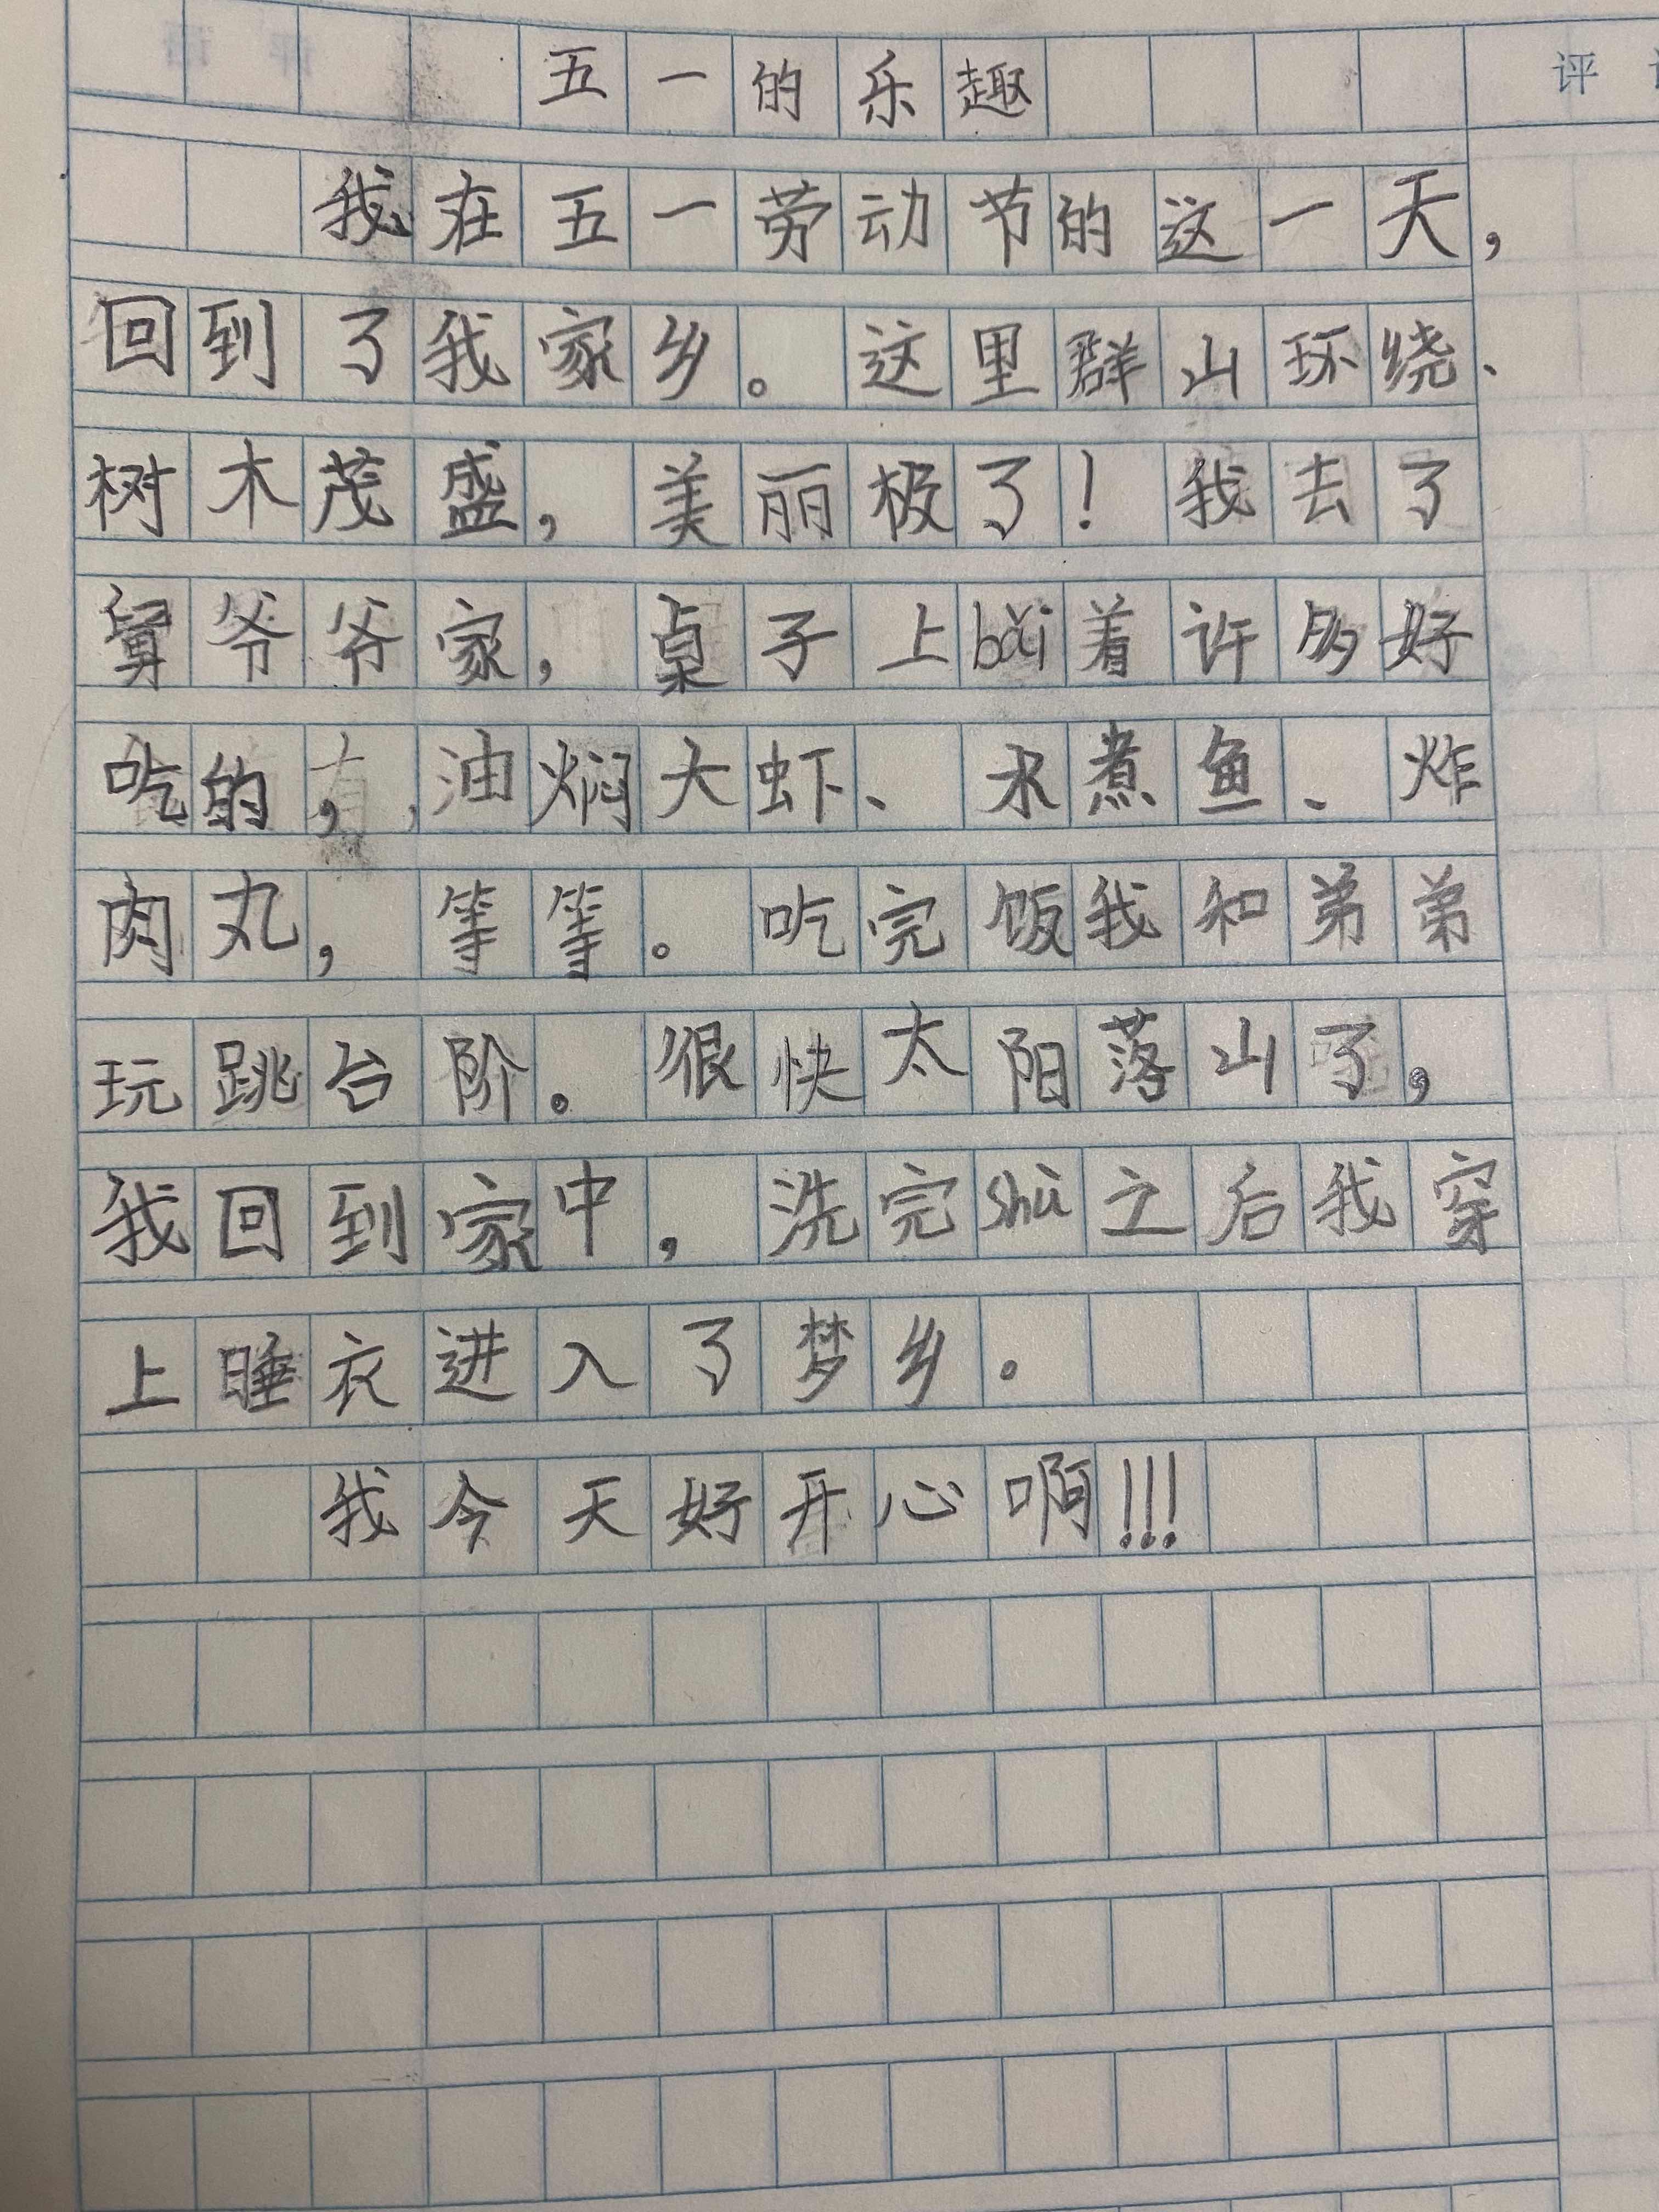 五一的乐趣
评
我在五一劳动节的这一天，
回到了我家乡。这里群山环绕、
树木茂盛，美丽极了！我去了
舅爷爷家，桌子上bǎi着许多好
吃的，油焖大虾、水煮鱼、炸
肉丸，等等。吃完饭我和弟弟
玩跳台阶。很快太阳落山了，
我回到家中，洗完shù之后我穿
上睡衣进入了梦乡。
我今天好开心啊!!!